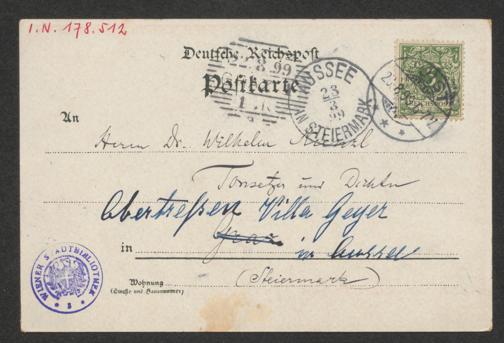 I.N. 178.512
Deutsche Reichspost
Postkarte
8.99
AUSSEE
23
8
99
IN STEIERMARK
An
Herrn Dr. Wilhelm Kienzl
Tonsetzer und Dichter
Obertressen Villa Geyer
in Graz in Aussee
(Steiermark)
Wohnung
(Straße und Hausnummer)
WIENER STADTBIBLIOTHEK